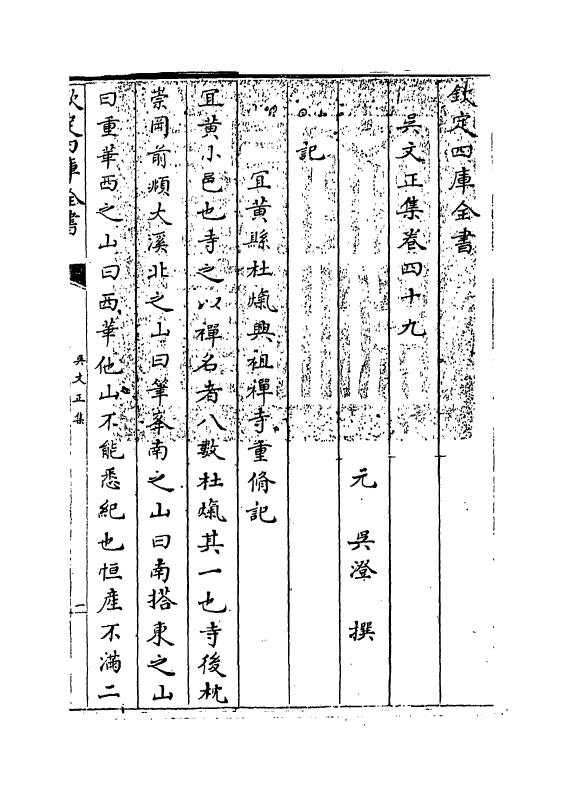 欽定四庫全書
吳文正集卷四十九
元 吳澄 撰
記
宜黃縣杜㷛興祖禪寺重脩記
宜黃小邑也寺之以禪名者八數杜㷛其一也寺後枕
崇岡前瀕大溪北之山曰筆峯南之山曰南搭東之山
曰重華西之山曰西華他山不能悉紀也恒產不滿二
欽定四庫全書
吳文正集
二